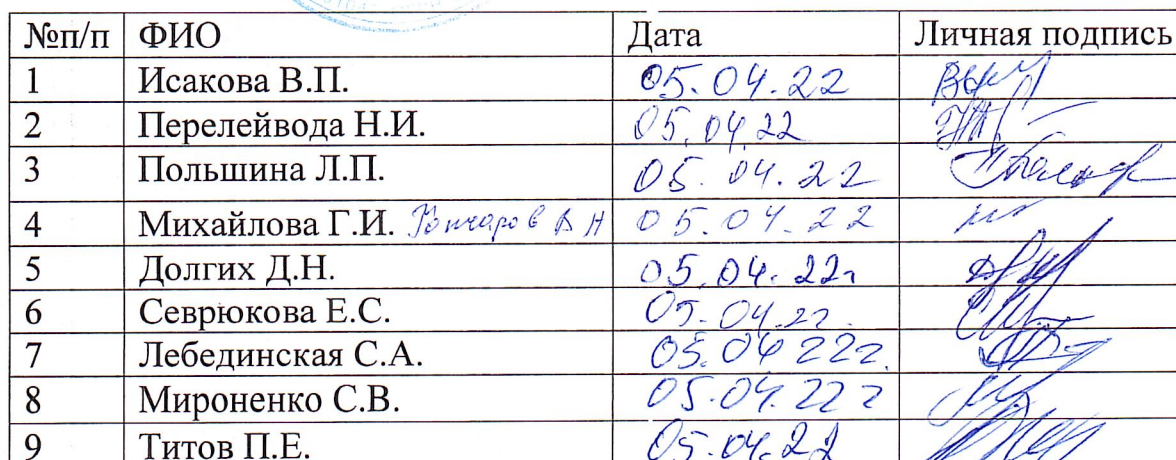 №п/п ФИО Дата Личная подпись
1 Исакова В.П. 05.04.22
2 Перелейвода Н.И. 05.04.22
3 Польшина Л.П. 05.04.22
4 Михайлова Г.И. Гончаров В Н 05.04.22
5 Долгих Д.Н. 05.04.22г
6 Севрюкова Е.С. 05.04.22.
7 Лебединская С.А. 05.04 22г.
8 Мироненко С.В. 05.04.22 г
9 Титов П.Е. 05.04.22